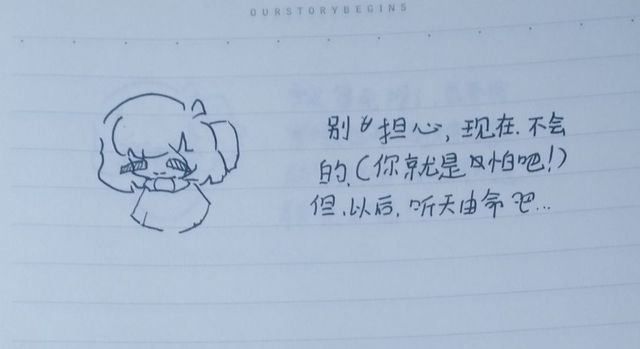 OURSTORYBEGINS
别担心,现在.不会
的.(你就是怕吧!)
但.以后.听天由命吧...